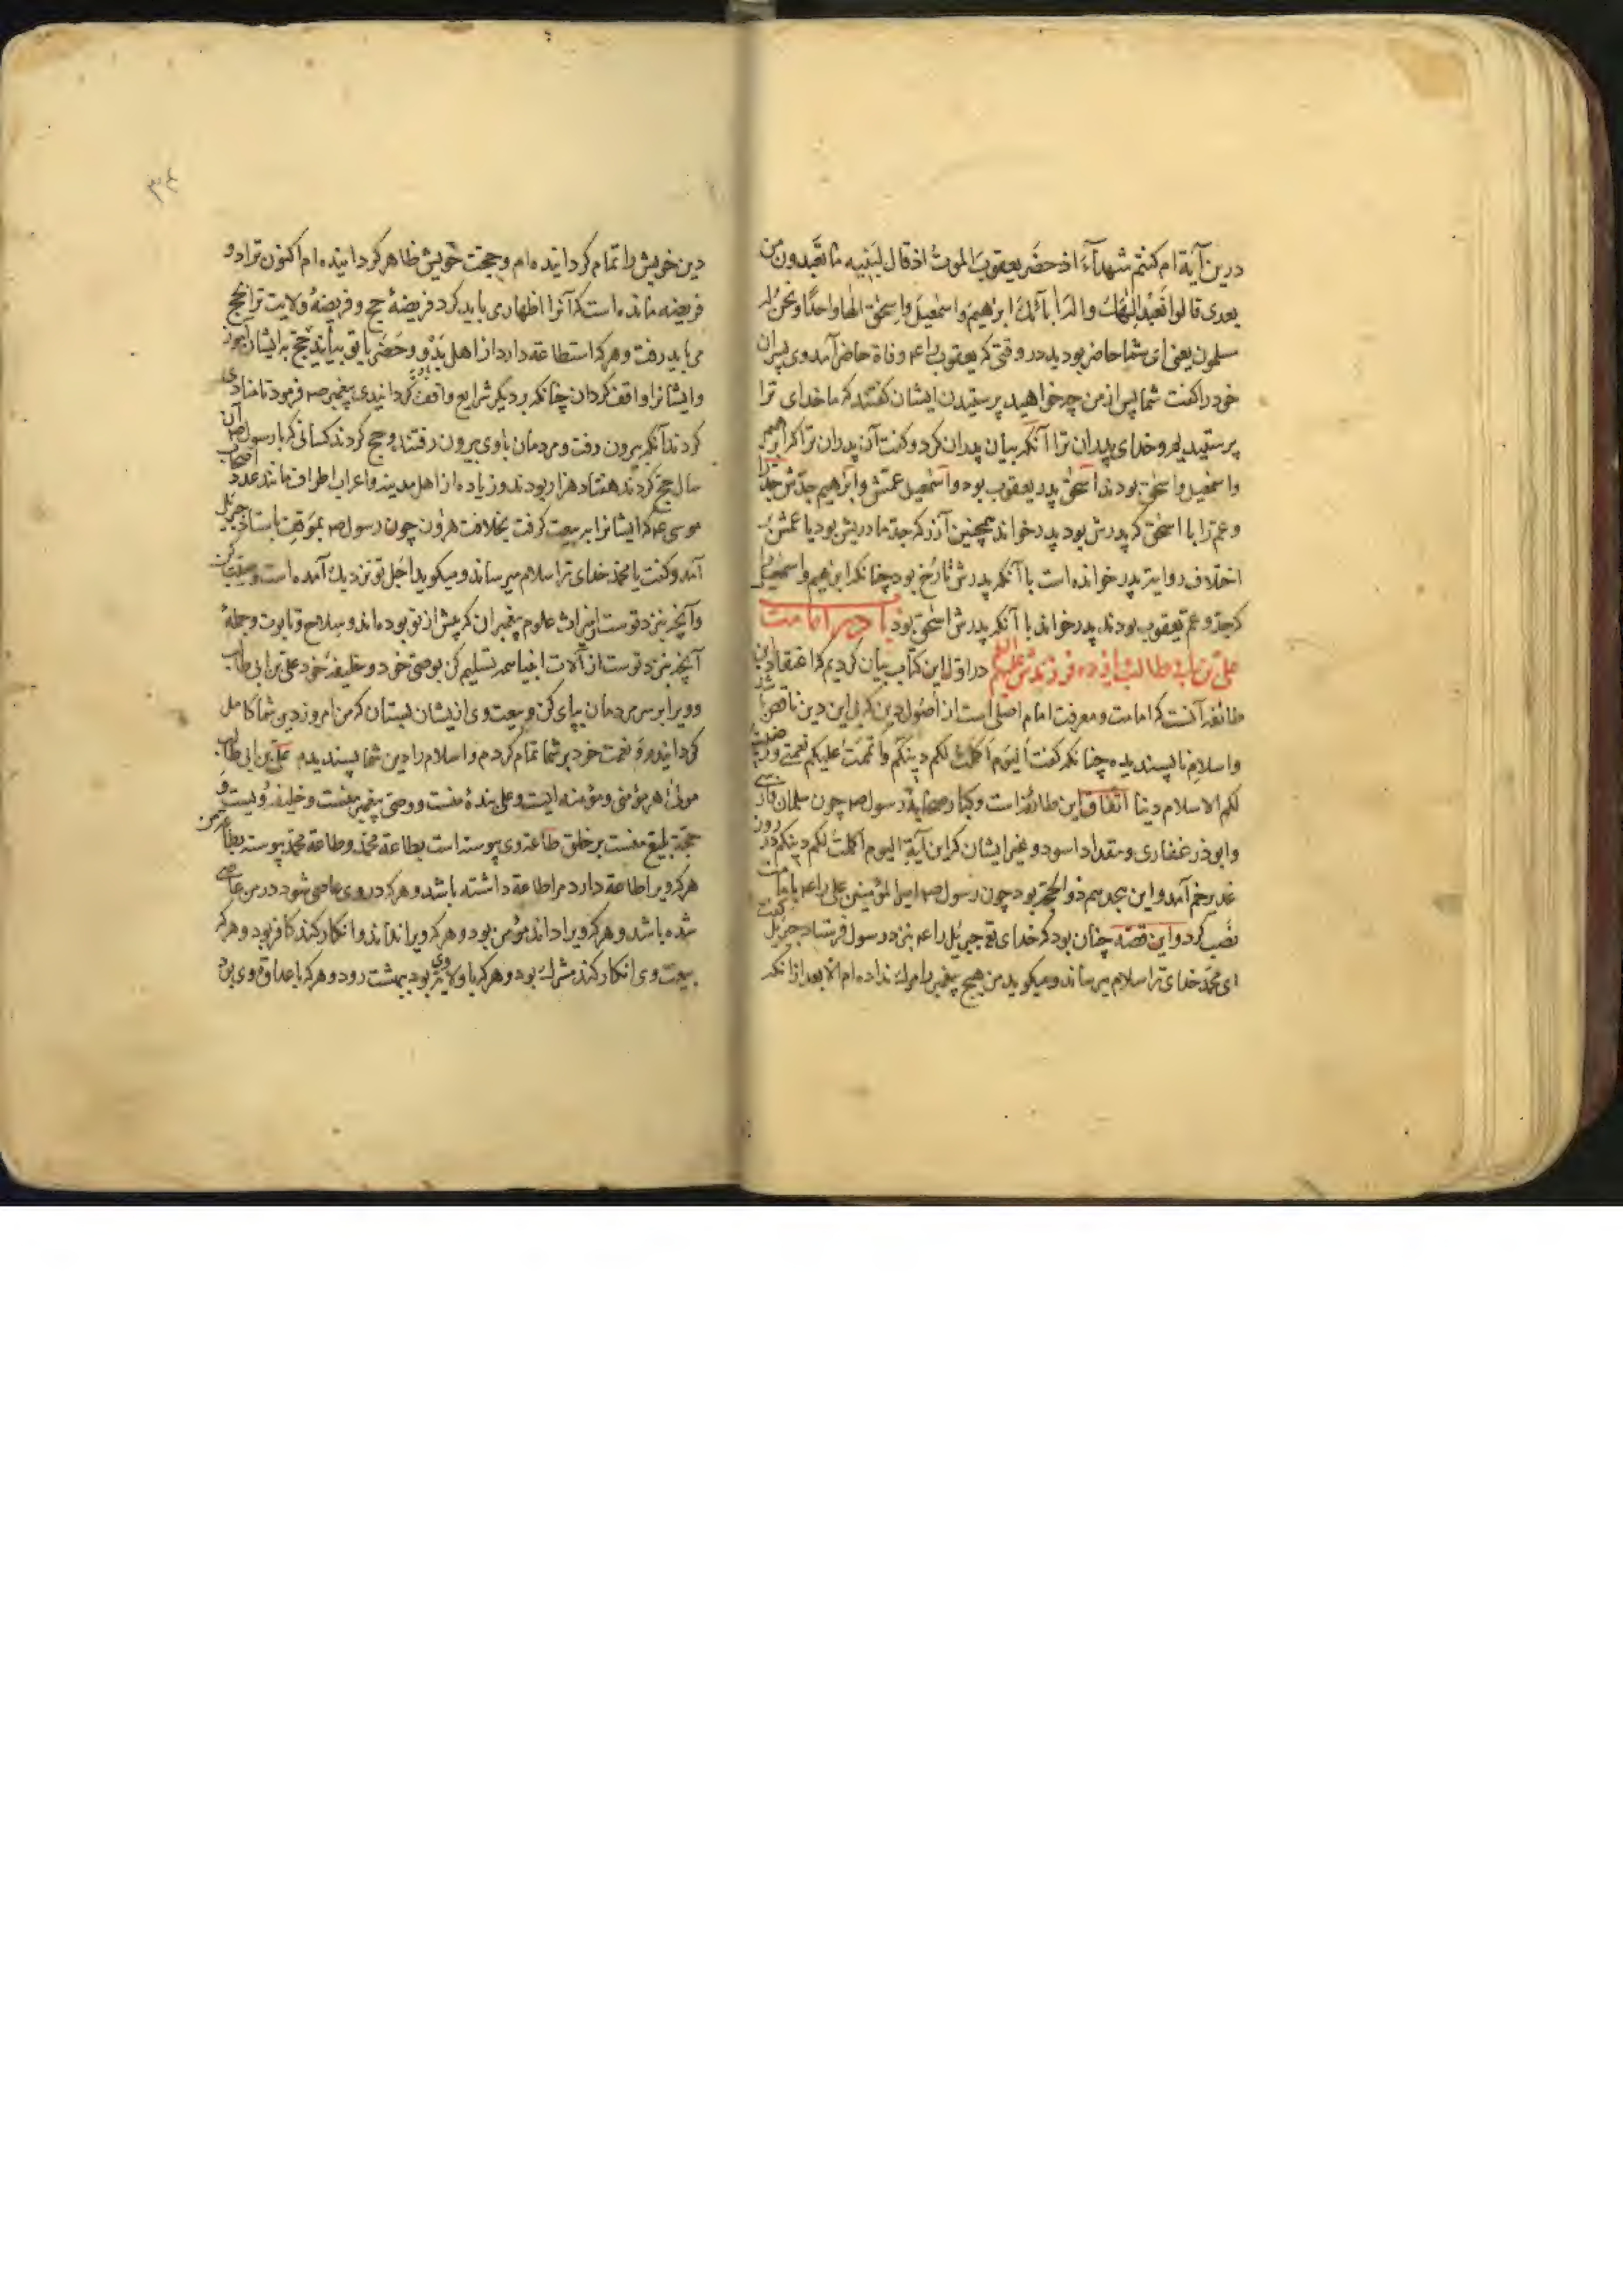 درین آیة ام کنتم شهدآء اذ حضر یعقوب الموت اذ قال لبنیه ما تعبدون من
بعدی قالوا نعبد الهک واله ابائک ابرهیم واسمعیل واسحق الها واحدا ونحن له
مسلمون یعنی ای شما حاضر بودید در وقتی که یعقوب را عم وفاة حاضر آمد وی پسران
خود را کفت شما پس از من چه خواهید پرستیدن ایشان کفتند که ما خدای ترا
پرستیم و خدای پدران ترا آنکه بیان پدران کرد و کفت آن پدران ترا که ابرهیم
واسمعیل واسحق بودند اسحق پدر یعقوب بود واسمعیل عمش وابرهیم جدش جد را
وعم را با اسحق که پدرش بود پدر خواند همچنین آزر که جد مادریش بود یا عمش بر
اختلاف روایة پدر خوانده است با آنکه پدرش تارخ بود چنانکه ابرهیم واسمعیل
که جد و عم یعقوب بودند پدر خواند با آنکه پدرش اسحق بود باب در امامت
علی بن ابی طالب و یازده فرزندش علیهم در اول این کتاب بیان کردیم که اعتقاد این
طائفه آنست که امامت و معرفت امام اصلی است از اصول دین که بی این دین ناقص باشد
واسلام ناپسندیده چنانکه کفت الیوم اکملت لکم دینکم واتممت علیکم نعمتی ورضیت
لکم الاسلام دینا اتفاق این طائفه است وکبار صحابه رسول صم چون سلمان فارسی
وابوذر غفاری ومقداد اسود و غیر ایشان که این آیة الیوم اکملت لکم دینکم در روز
غدیر خم آمد و این هجدهم ذوالحجة بود چون رسول صم امیرالمؤمنین علی را عم بامامت
نصب کرد و این قصه چنان بود که خدای تع جبرئیل را عم بنزد رسول فرستاد جبرئیل کفت
ای محمد خدای ترا سلام میرساند و میکوید من هیچ پیغمبر را مرک نداده ام الا بعد از آنکه
۳۴
دین خویش را تمام کردانیده ام و حجت خویش ظاهر کردانیده ام اکنون ترا دو
فریضه مانده است که آنرا اظهار می باید کرد فریضهٔ حج و فریضهٔ ولایت ترا بحج
می باید رفت و هر که استطاعة دارد از اهل بدو و حضر با تو بیایند حج به ایشان آموز
وایشانرا واقف کردان چنانکه بر دیکر شرایع واقف کردانیدی پیغمبر صم فرمود تا منادی
کردند آنکه بیرون رفت و مردمان با وی بیرون رفتند و حج کردند کسانی که با رسول صم آن
سال حج کردند هفتاد هزار بودند و زیاده از اهل مدینه و اعراب اطراف مانند عدد اصحاب
موسی عم که ایشانرا بر بیعت کرفت بخلافت هرون چون رسول صم بموقف بایستاد جبرئیل
آمد و کفت یا محمد خدای ترا سلام میرساند و میکوید اجل تو نزدیک آمده است
وآنچه بنزد توست از میراث علوم پیغمبران که پیش از تو بوده اند و سلاح و تابوت و جملهٔ
آنچه بنزد توست از آلات انبیا همه تسلیم کن بوصی خود و خلیفهٔ خود علی بن ابی طالب
وویرا بر سر مردمان بپای کن و بیعت وی از ایشان بستان که من امروز دین شما کامل
کردانیدم و نعمت خود بر شما تمام کردم و اسلام را دین شما پسندیدم علی بن ابی طالب
مولی هر مؤمنی و مؤمنه ایست و علی بندهٔ منست و وصی پیغمبر منست و خلیفه ویست و
حجة بلیغ منست بر خلق طاعة وی پیوسته است بطاعة محمد و طاعة محمد پیوسته بطاعة من
هر که ویرا طاعة دارد مرا طاعة داشته باشد و هر که در وی عاصی شود در من عاصی
شده باشد و هر که ویرا داند مؤمن بود و هر که ویرا نداند و انکار کند کافر بود و هر که
بیعت وی انکار کند مشرک بود و هر که با ولایة وی بود ببهشت رود و هر که با عداوة وی بود